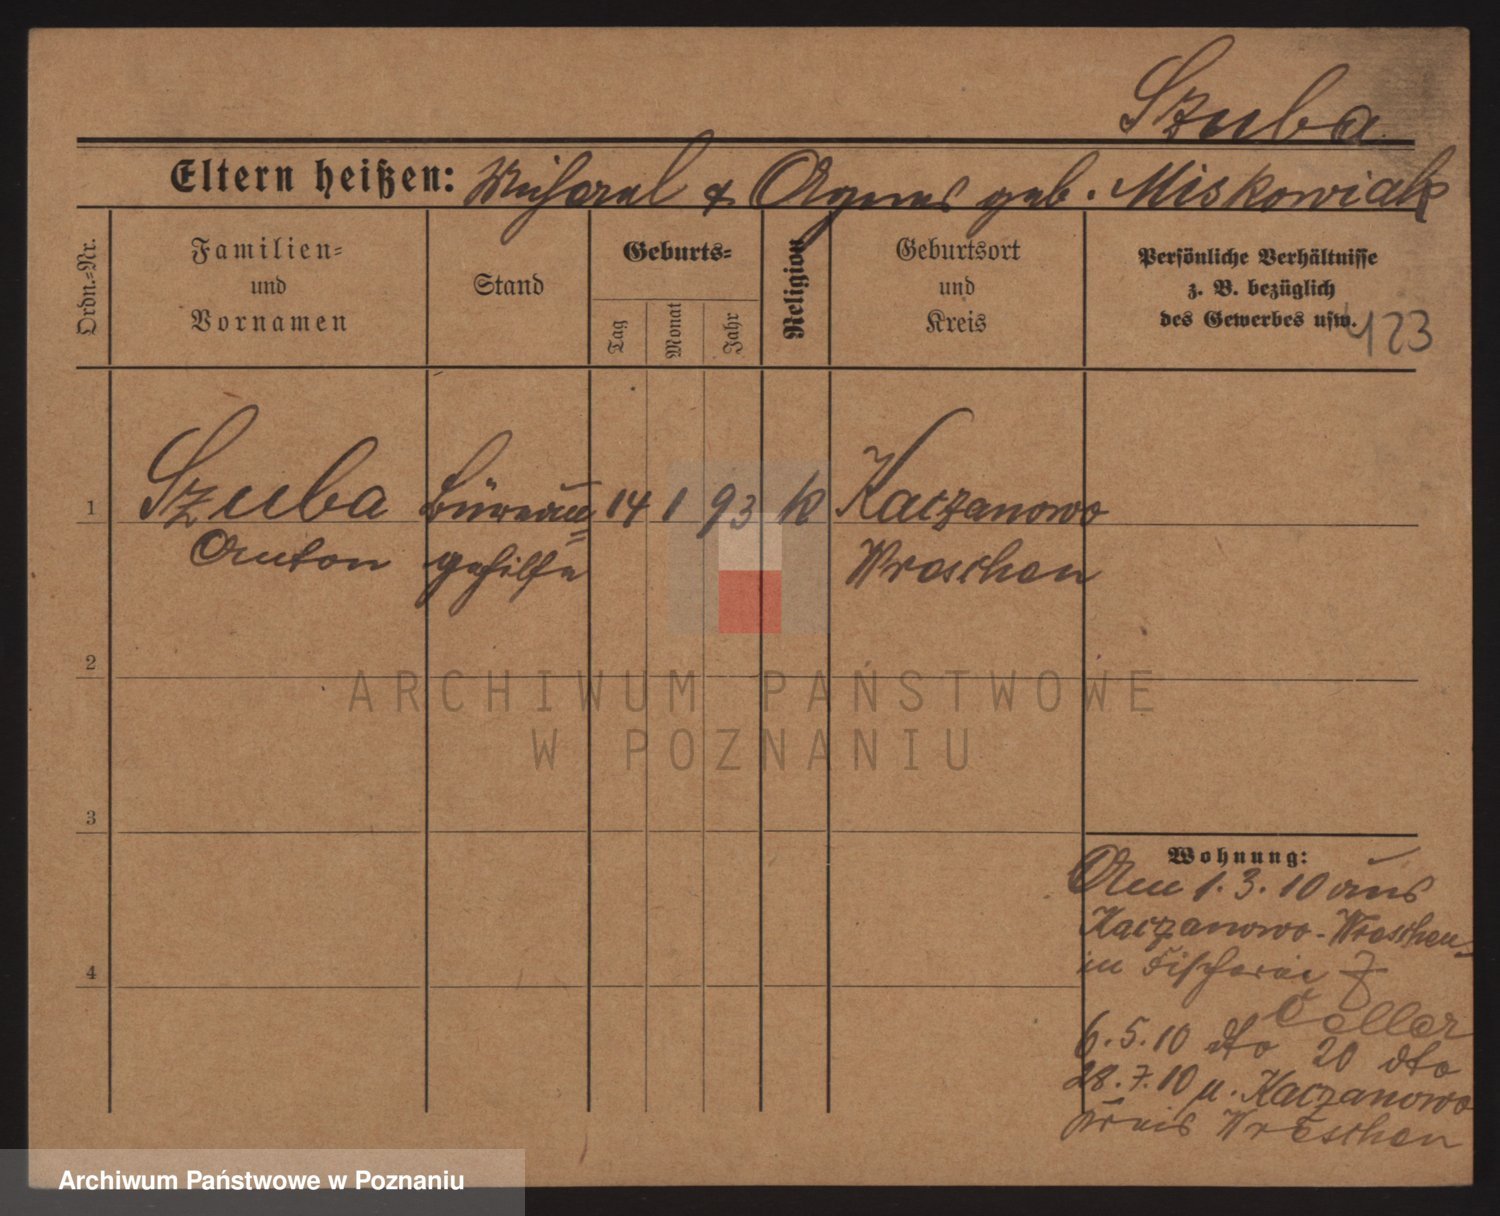 Szuba
Eltern heißen: Michael & Agnes geb. Miskowiak
Ordn.-Nr.
Familien-
und
Vornamen
Stand
Geburts-
Tag
Monat
Jahr
Religion
Geburtsort
und
Kreis
Persönliche Verhältnisse
z. B. bezüglich
des Gewerbes usw.
423
1
Szuba
Anton
Büreau=
gehilfe
14 1 93 k
Kaczanowo
Wreschen
2
ARCHIWUM PAŃSTWOWE
W POZNANIU
3
4
Wohnung:
Am 1.3.10 aus
Kaczanowo-Wreschen-
in Fischerei 7
Celler
6.5.10 dto 20 dto
28.7.10 n. Kaczanowo
Kreis Wreschen
Archiwum Państwowe w Poznaniu